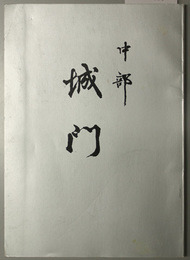 中部
城门